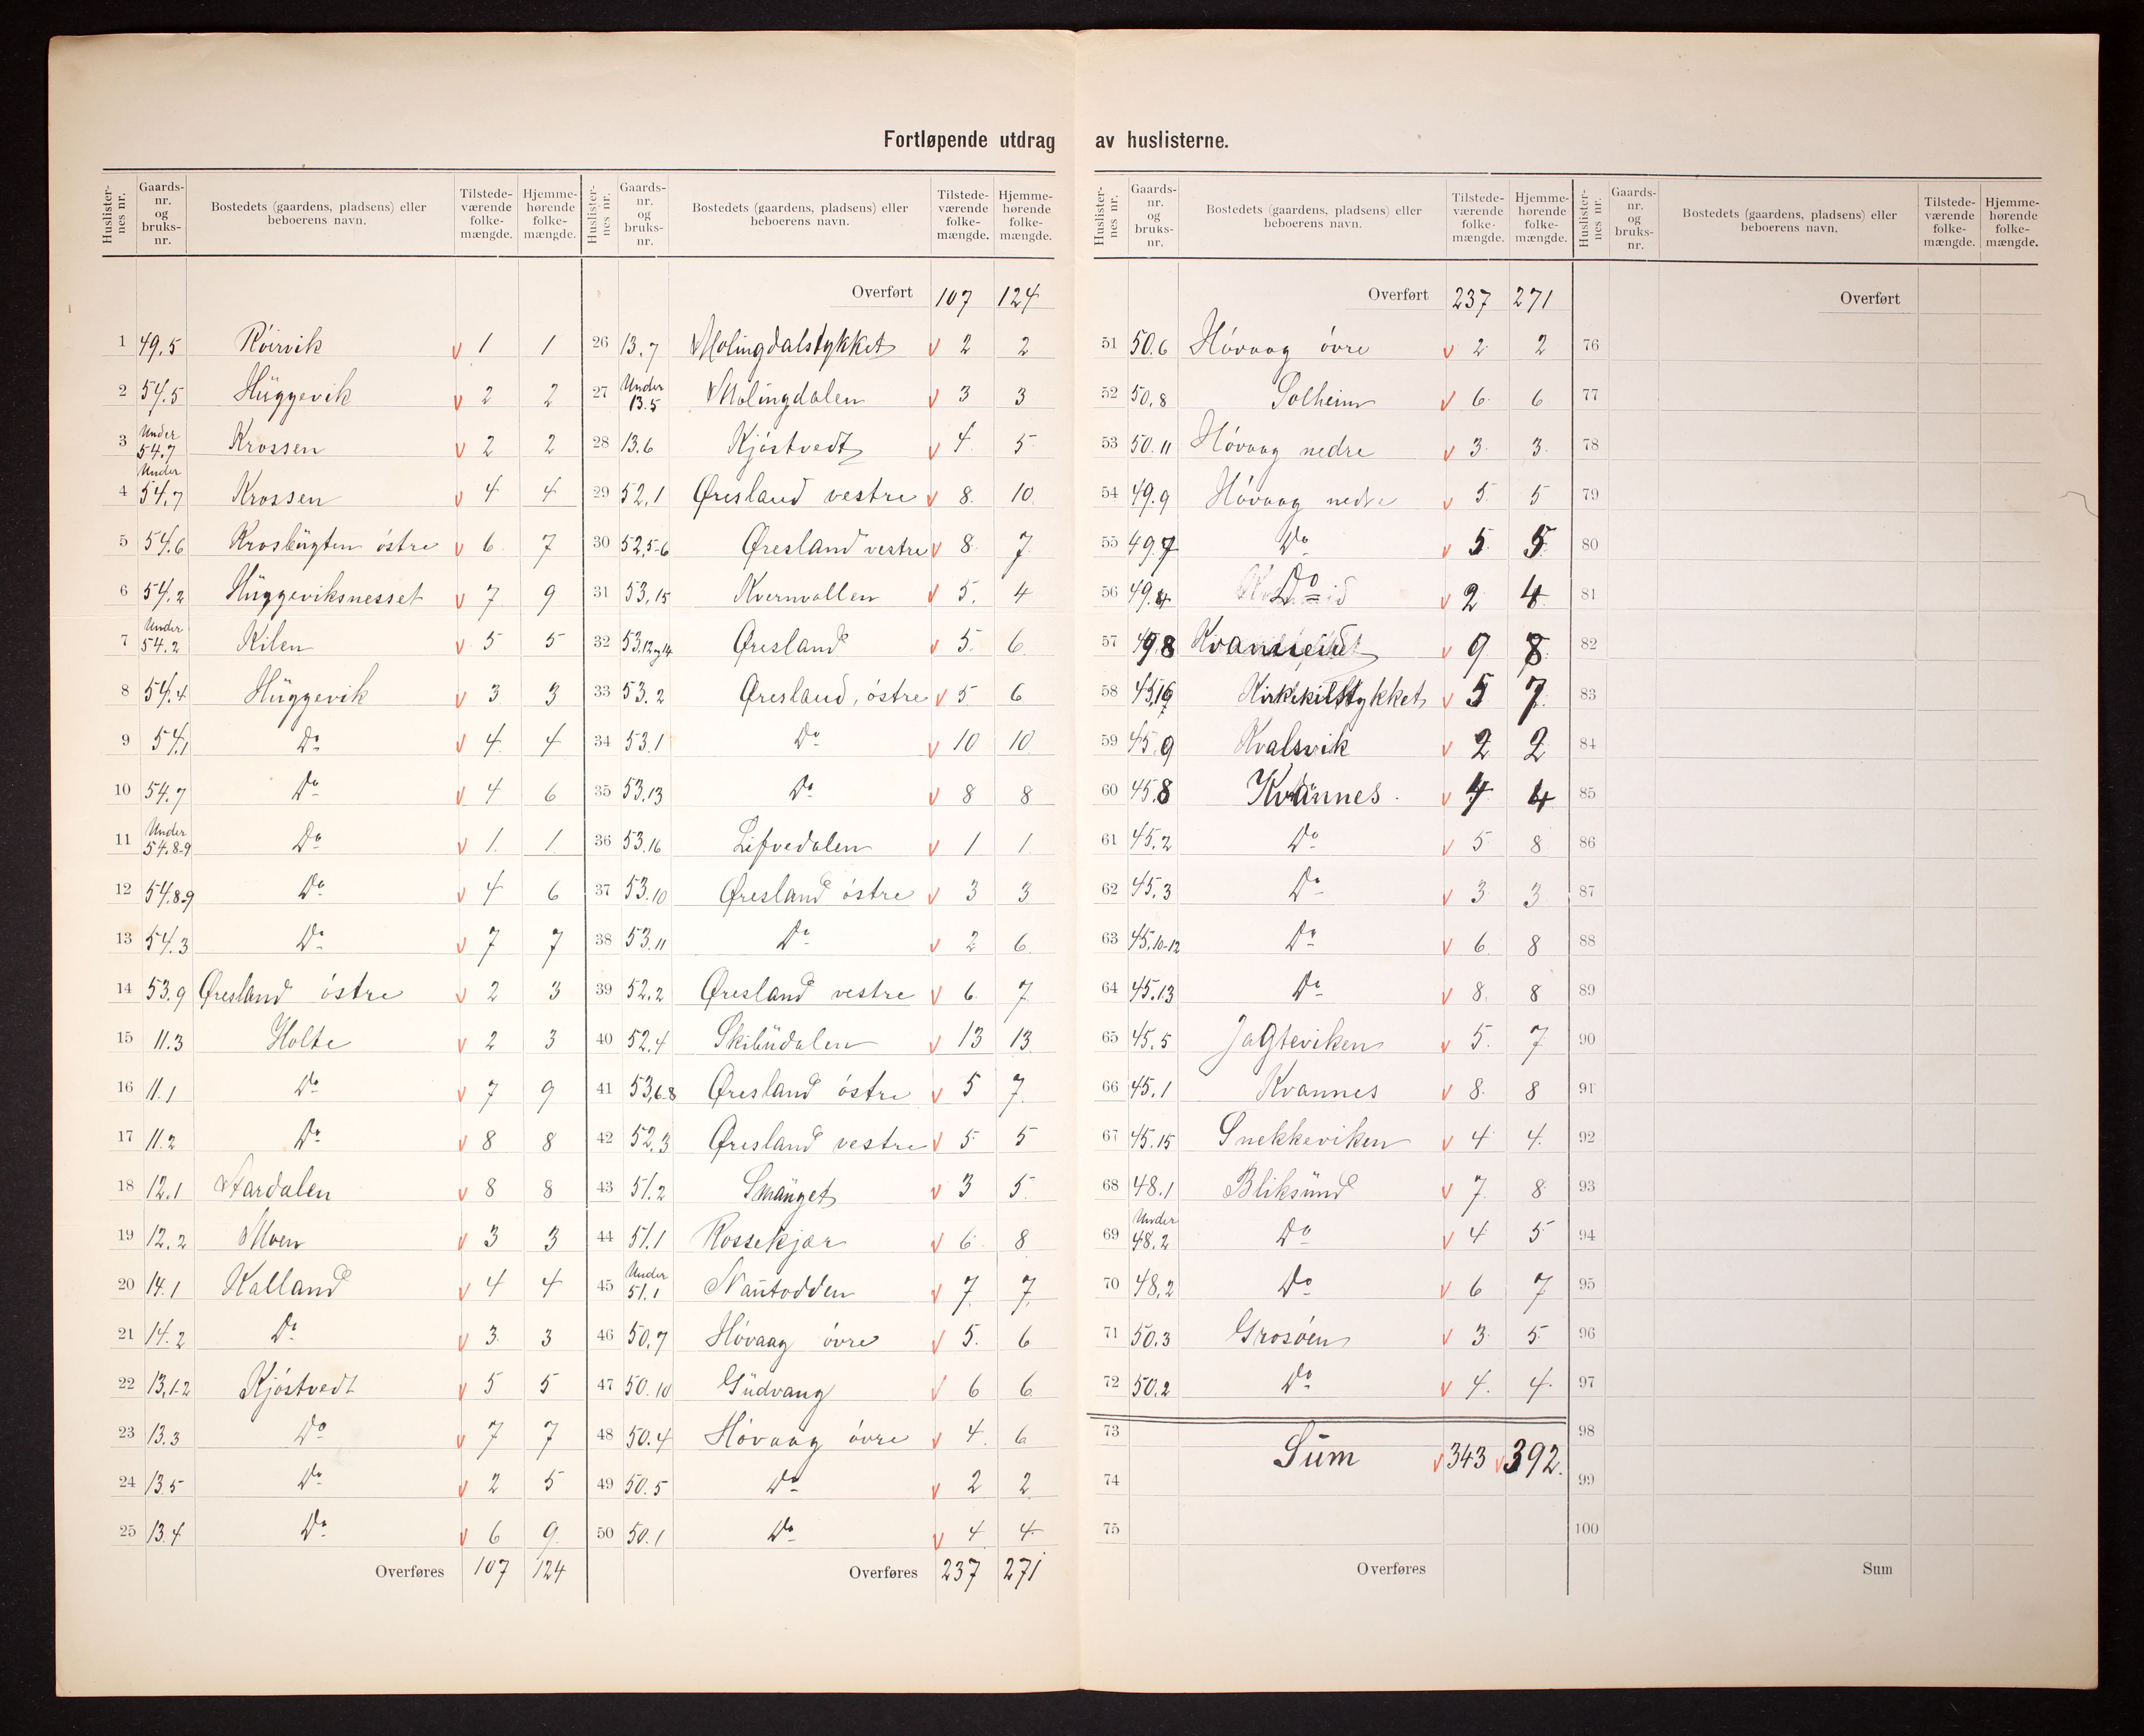 Fortløpende utdrag av huslisterne.
Huslisternes nr. Gaards-nr. og bruks-nr. Bostedets (gaardens, pladsens) eller beboerens navn. Tilstedeværende folkemængde. Hjemmehørende folkemængde.
1 49.5 Röirvik v 1 1
2 54.5 Hüggevik v 2 2
3 Under 54.7 Krossen v 2 2
4 Under 54.7 Krossen v 4 4
5 54.6 Krosbügten östre v 6 7
6 54.2 Hüggeviksnesset v 7 9
7 Under 54.2 Kilen v 5 5
8 54.4 Hüggevik v 3 3
9 54.1 Do v 4 4
10 54.7 Do v 4 6
11 Under 54.8-9 Do v 1 1
12 54.8-9 Do v 4 6
13 54.3 Do v 7 7
14 53.9 Øresland östre v 2 3
15 11.3 Holte v 2 3
16 11.1 Do v 7 9
17 11.2 Do v 8 8
18 12.1 Aardalen v 8 8
19 12.2 Moen v 3 3
20 14.1 Kalland v 4 4
21 14.2 Do v 3 3
22 13,1-2 Kjöstvedt v 5 5
23 13.3 Do v 7 7
24 13.5 Do v 2 5
25 13.4 Do v 6 9
Overføres 107 124
Huslisternes nr. Gaards-nr. og bruks-nr. Bostedets (gaardens, pladsens) eller beboerens navn. Tilstedeværende folkemængde. Hjemmehørende folkemængde.
Overført 107 124
26 13.7 Molingdalstykket v 2 2
27 Under 13.5 Molingdalen v 3 3
28 13.6 Kjöstvedt v 4 5
29 52.1 Øresland vestre v 8 10
30 52,5-6 Øresland vestre v 8 7
31 53,15 Kvernvollen v 5 4
32 53,12og14 Øresland v 5 6
33 53.2 Øresland, östre v 5 6
34 53.1 Do v 10 10
35 53.13 Do v 8 8
36 53.16 Lifvedalen v 1 1
37 53.10 Øresland östre v 3 3
38 53.11 Do v 2 6
39 52.2 Øresland vestre v 6 7
40 52.4 Skibüdalen v 13 13
41 53,6-8 Øresland östre v 5 7
42 52.3 Øresland vestre v 5 5
43 51.2 Smänget v 3 5
44 51.1 Rossekjær v 6 8
45 Under 51.1 Naütodden v 7 7
46 50.7 Hövaag övre v 5 6
47 50.10 Güdvang v 6 6
48 50.4 Hövaag övre v 4 6
49 50.5 Do v 2 2
50 50.1 Do v 4 4
Overføres 237 271
Huslisternes nr. Gaards-nr. og bruks-nr. Bostedets (gaardens, pladsens) eller beboerens navn. Tilstedeværende folkemængde. Hjemmehørende folkemængde.
Overført 237 271
51 50.6 Hövaag övre v 2 2
52 50.8 Solheim v 6 6
53 50.11 Hövaag nedre v 3 3
54 49.9 Hövaag nedre v 5 5
55 49.7 Do v 5 5
56 49.4 Do v 2 4
57 49.8 v 9 8
58 45,16 Kirkekilstykket v 5 7
59 45.9 Kvalsvik v 2 2
60 45.8 Kvannes v 4 4
61 45.2 Do v 5 8
62 45.3 Do v 3 3
63 45,10-12 Do v 6 8
64 45.13 Do v 8 8
65 45.5 Jagteviken v 5 7
66 45.1 Kvannes v 8 8
67 45.15 Snekkeviken v 4 4
68 48.1 Bliksünd v 7 8
69 Under 48.2 Do v 4 5
70 48.2 Do v 6 7
71 50.3 Grosöen v 3 5
72 50.2 Do v 4 4
73
Süm v 343 v 392.
74
75
Overføres
Huslisternes nr. Gaards-nr. og bruks-nr. Bostedets (gaardens, pladsens) eller beboerens navn. Tilstedeværende folkemængde. Hjemmehørende folkemængde.
Overført
76
77
78
79
80
81
82
83
84
85
86
87
88
89
90
91
92
93
94
95
96
97
98
99
100
Sum